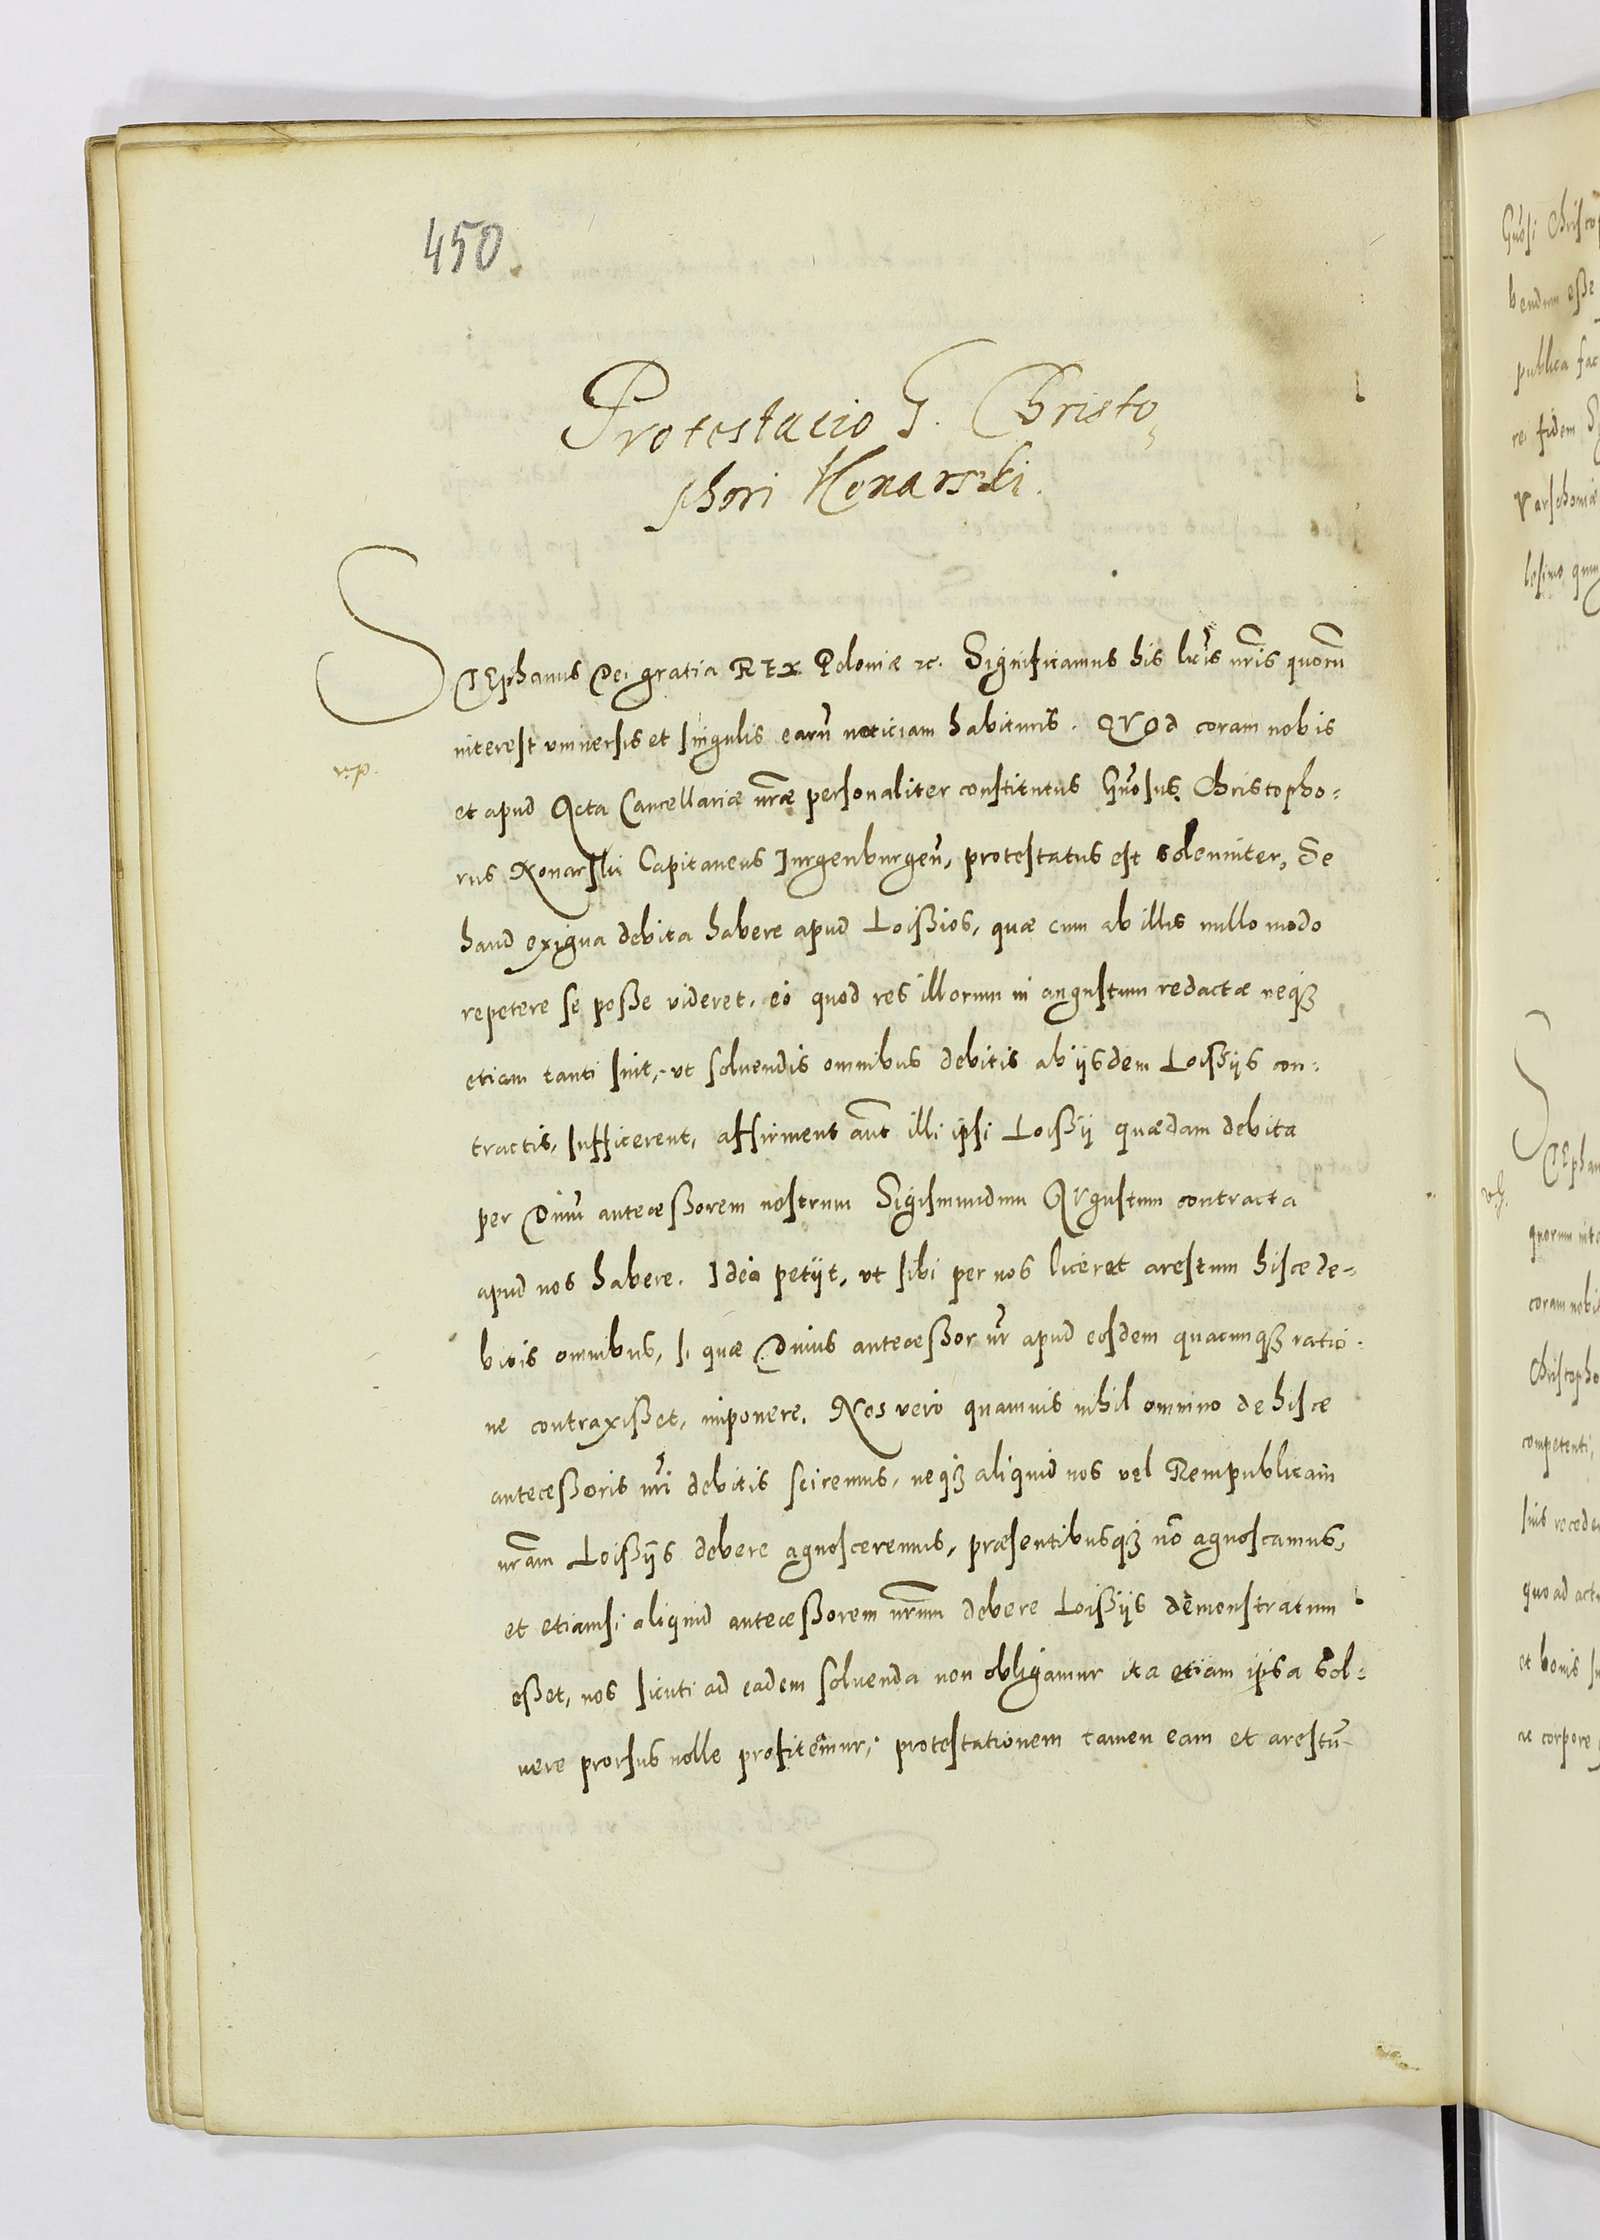 450.
Protestacio G. Christo„
phori Konarski.
STEphanus Dei gratia REX Poloniæ ꝛc. Significamus his lrĩs nr̃is quorũ
interest vniuersis et singulis earũ noticiam habituris. QVOd coram nobis
v.p.
et apud Acta Cancellariæ nr̃æ personaliter constitutus Gn̄osus Christopho:
rus Konarski Capitaneus Jurgenburgeñ, protestatus est solenniter, Se
haud exigua debita habere apud Loißios, quæ cum ab illis nullo modo
repetere se poße videret, eò quod res illorum in angustum redactæ neqȝ
etiam tanti sint, vt soluendis omnibus debitis ab ijsdem Loißijs con:
tractis, sufficerent, affirment aũt illi ipsi Loißij quædam debita
per Diuũ anteceßorem nostrum Sigismundum AVgustum contracta
apud nos habere. Ideo petijt, vt sibi per nos liceret arestum hisce de:
bitis omnibus, si quæ Diuus anteceßor nr̃ apud eosdem quacunqȝ ratio:
ne contraxißet, imponere. Nos verò quamuis nihil omnino de hisce
anteceßoris nr̃i debitis sciremus, neqȝ aliquid nos vel Rempublicam
nr̃am Loißijs debere agnosceremus, præsentibusqȝ nō agnoscamus,
et etiamsi aliquid anteceßorem nr̃um debere Loißijs demonstratum
eßet, nos sicuti ad eadem soluenda non obligamur ita etiam ipsa sol:
uere prorsus nolle profitemur, protestationem tamen eam et arestũ
Gn̄osi Christo
bendum eße
publica fac
rei fidem
Varschouiæ
STEphan
quorum inte
coram nobis
Christopho
competenti,
suis recede
quo ad act
et bonis
ac corpore